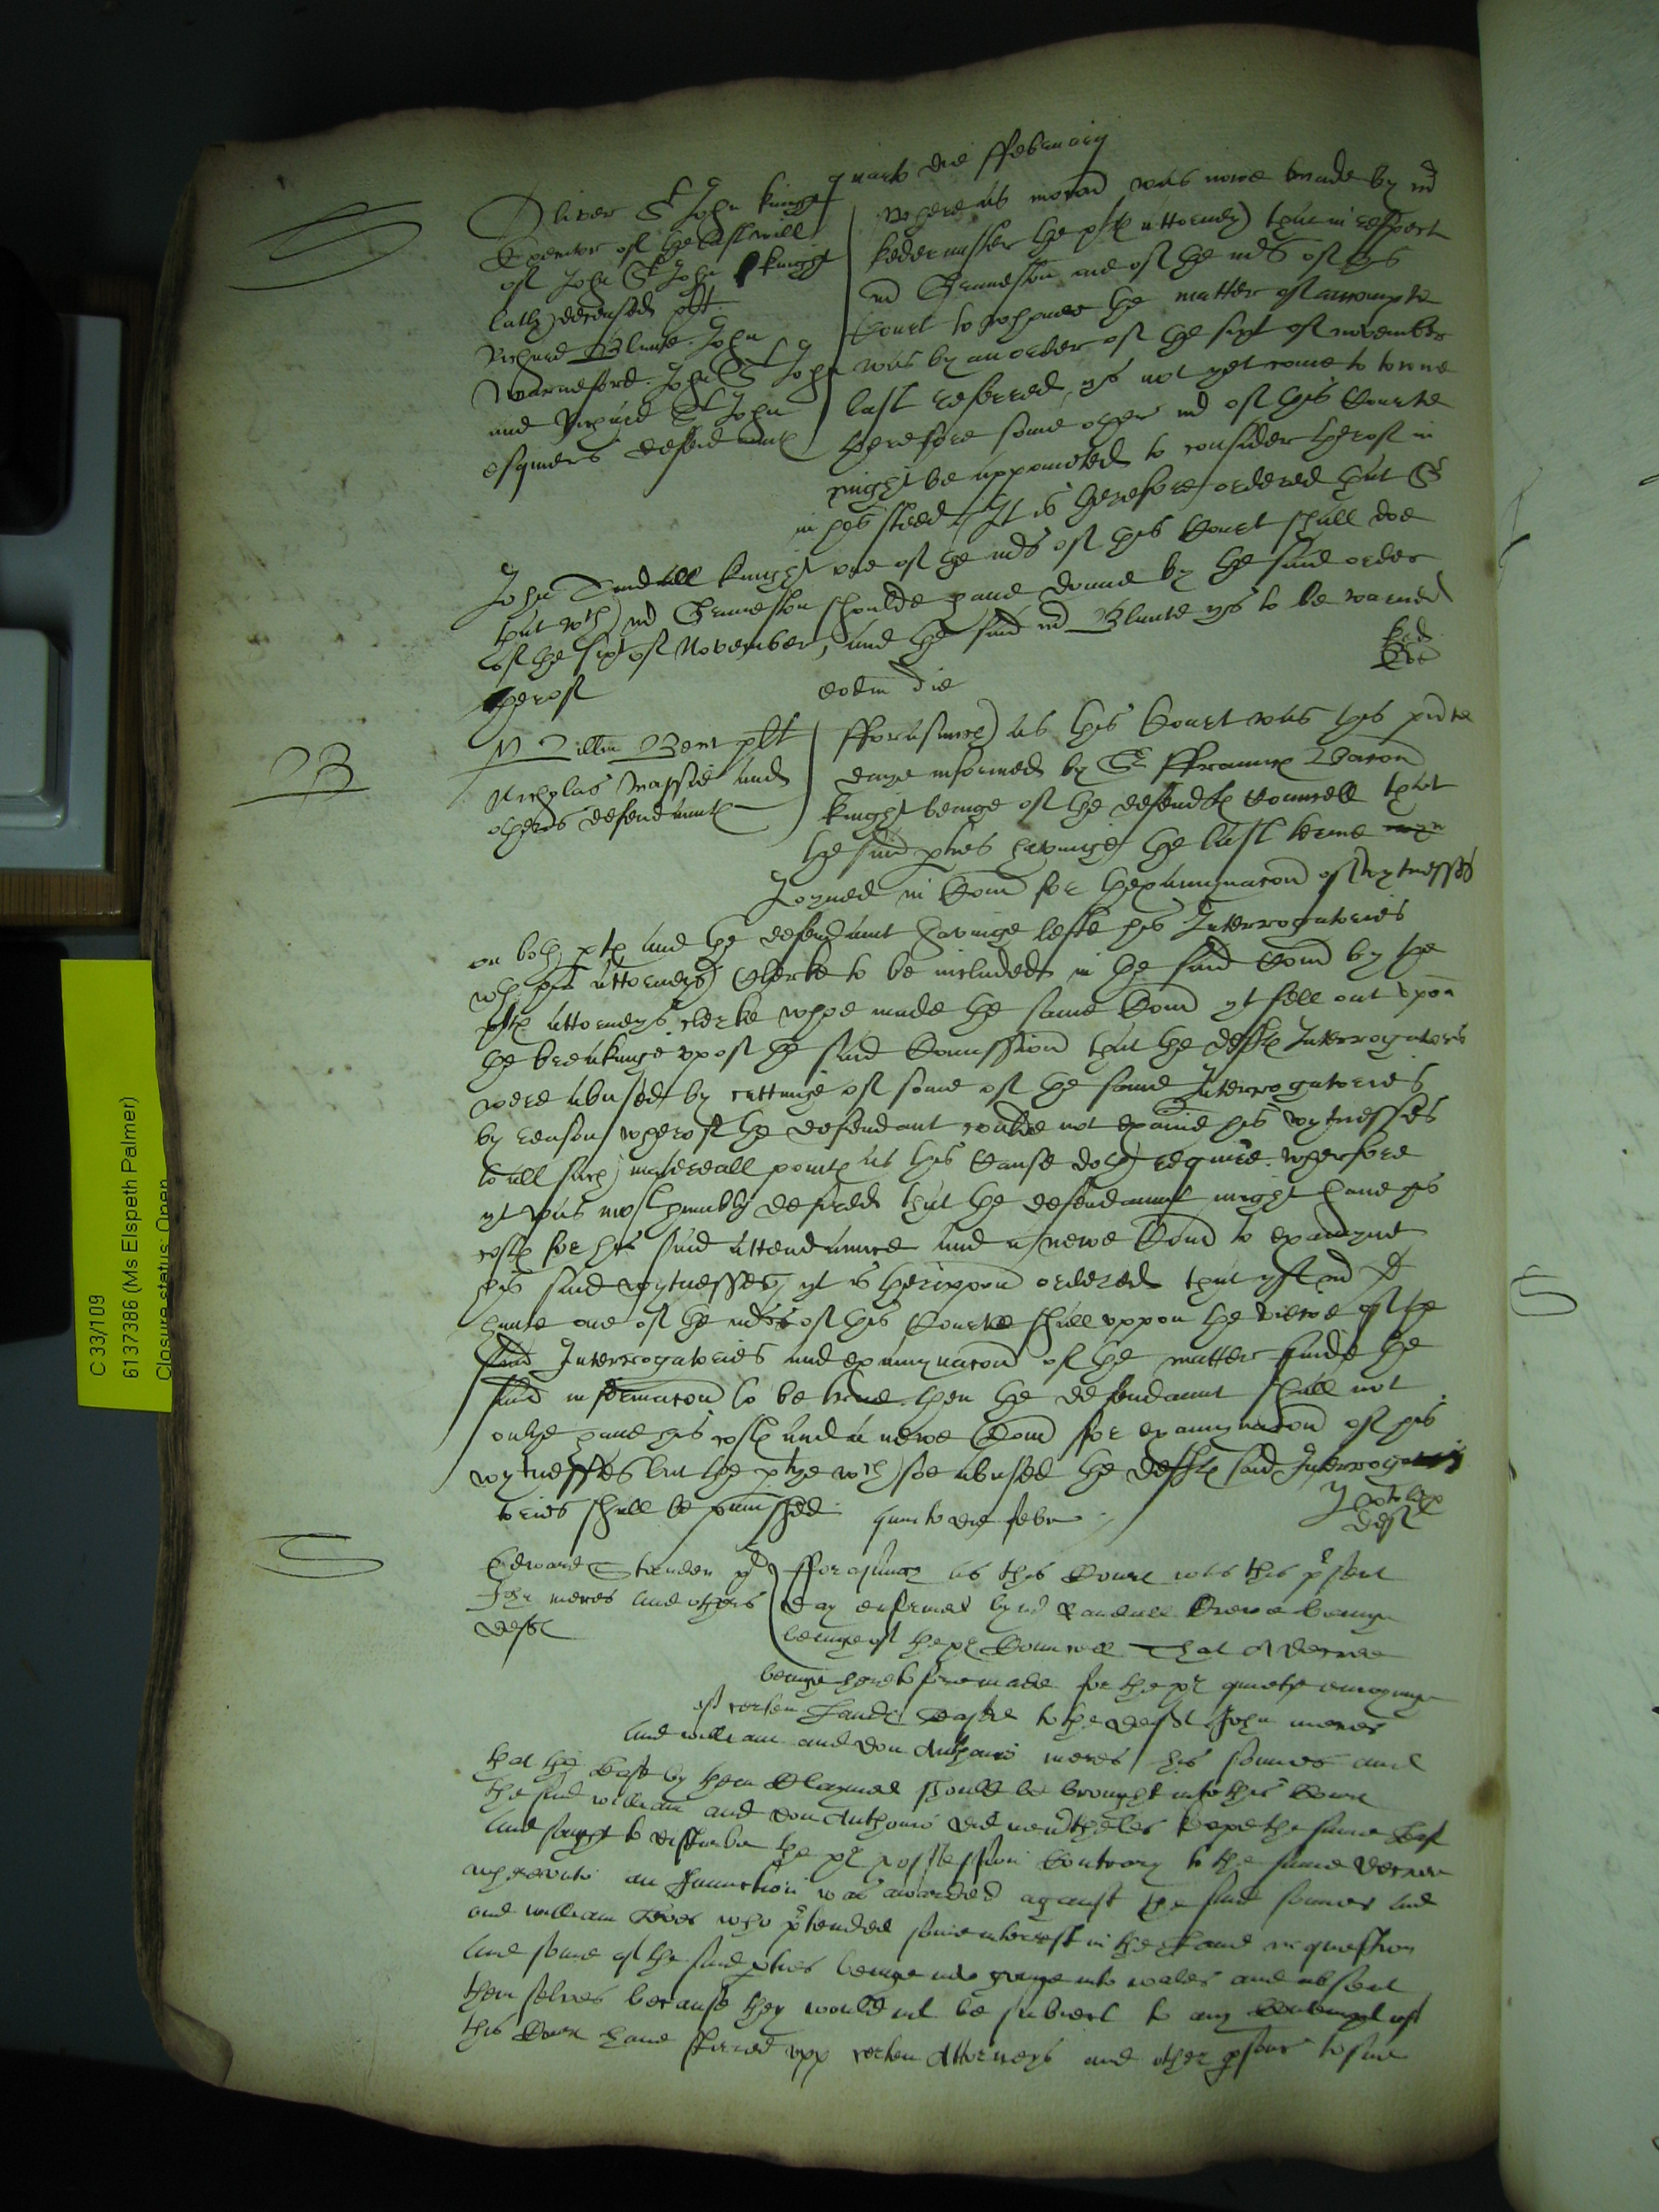 quarto die ffebruarij
S
Oliver St John knight
Executor of the last will
of John St John knight
lately deceased plt
Richard Blunte John
Warneford John St John
and Richard St John
esquiers defendantes
Whereas mocion was nowe made by mr
kedermister the pltes attorney that in respect
mr Grimeston one of the mrs of this
Court to whome the matter of accompte
was by an order of the sixt of november
last referred ys not yet come to towne
therefore some other mr of this Courte
might be appointed to consider therof in
in his steed It is therefore ordered that Sr
John Tindall knight one of the mrs of this Court shall doe
that wch mr Grimeston shoulde have donne by the said order
of the sixt of November, and the said mr Blunte ys to be warned
therof
ked
eodem die
B
Willm Bent plt
Nicholas Massie and
others defendantes
fforasmuch as this Court was this pnte
daye informed by Sr ffrauncs Bacon
knight beinge of the defendtes Counsell that
the said pties havinge the last terme
Joyned in Comn for thexaminacon of wytnesses
on both ptes and the defendant havinge lefte his Interrogatories
wth his attorneys Clerke to be included in the said Comn by the
pltes attorneys clerke whoe made the same Comn yt fell out upon
the breakinge up of the said Comission that the deftes Interrogatories
were abused by cuttinge of some of the same Interrogatories
by reason wherof the defendant coulde not examine his wytnesses
to all such materiall pointes as his Cause doth require wherfore
yt was most humbly desired that the defendaunt might have his
costes for his said attendaunce and a newe Comn to examyne
his said wytnesses, yt is therupon ordered that yf mr D
hunte one of the mrs of this Courte shall uppon the viewe of the
said Interrogatories and examynacon of the matter finde the
said informacon to be true then the defendaunt shall not
onlye have his costes and a newe Comn for examynacon of his
wytnesses but the ptye wch soe abused the deftes said Interroga
tories shall be punisshed
quinto die febr
S
Edward Standen pl
John meres and others
deft
fforasmuch as this Court was this psent
day enformed by mr Randall Crewe beinge
beinge of the pl Councell That A decree
beinge heretofore made for the pl quiet enioyinge
of certen Landes Lease to the deft John meres
and william and Don Anthonio meres his sonnes and
that the Lease by them Claymed should be brought into this Court
the said william and Don Anthonio did nevertheles kepe the same Lease
and sought to disturbe the pl possession Contrary to the same decree
whereuppon an Iniunction was awarded against the said sonnes and
and william who ptended some interest in the Land in question
and some of the said pties beinge now gone into wales and absent
them selves because they would not be subiect to any Contempt of
this Court have stirred upp certen Attorneys and other psons to sue
C 33/109
6137386 (Ms Elspeth Palmer)
Closure status: Open